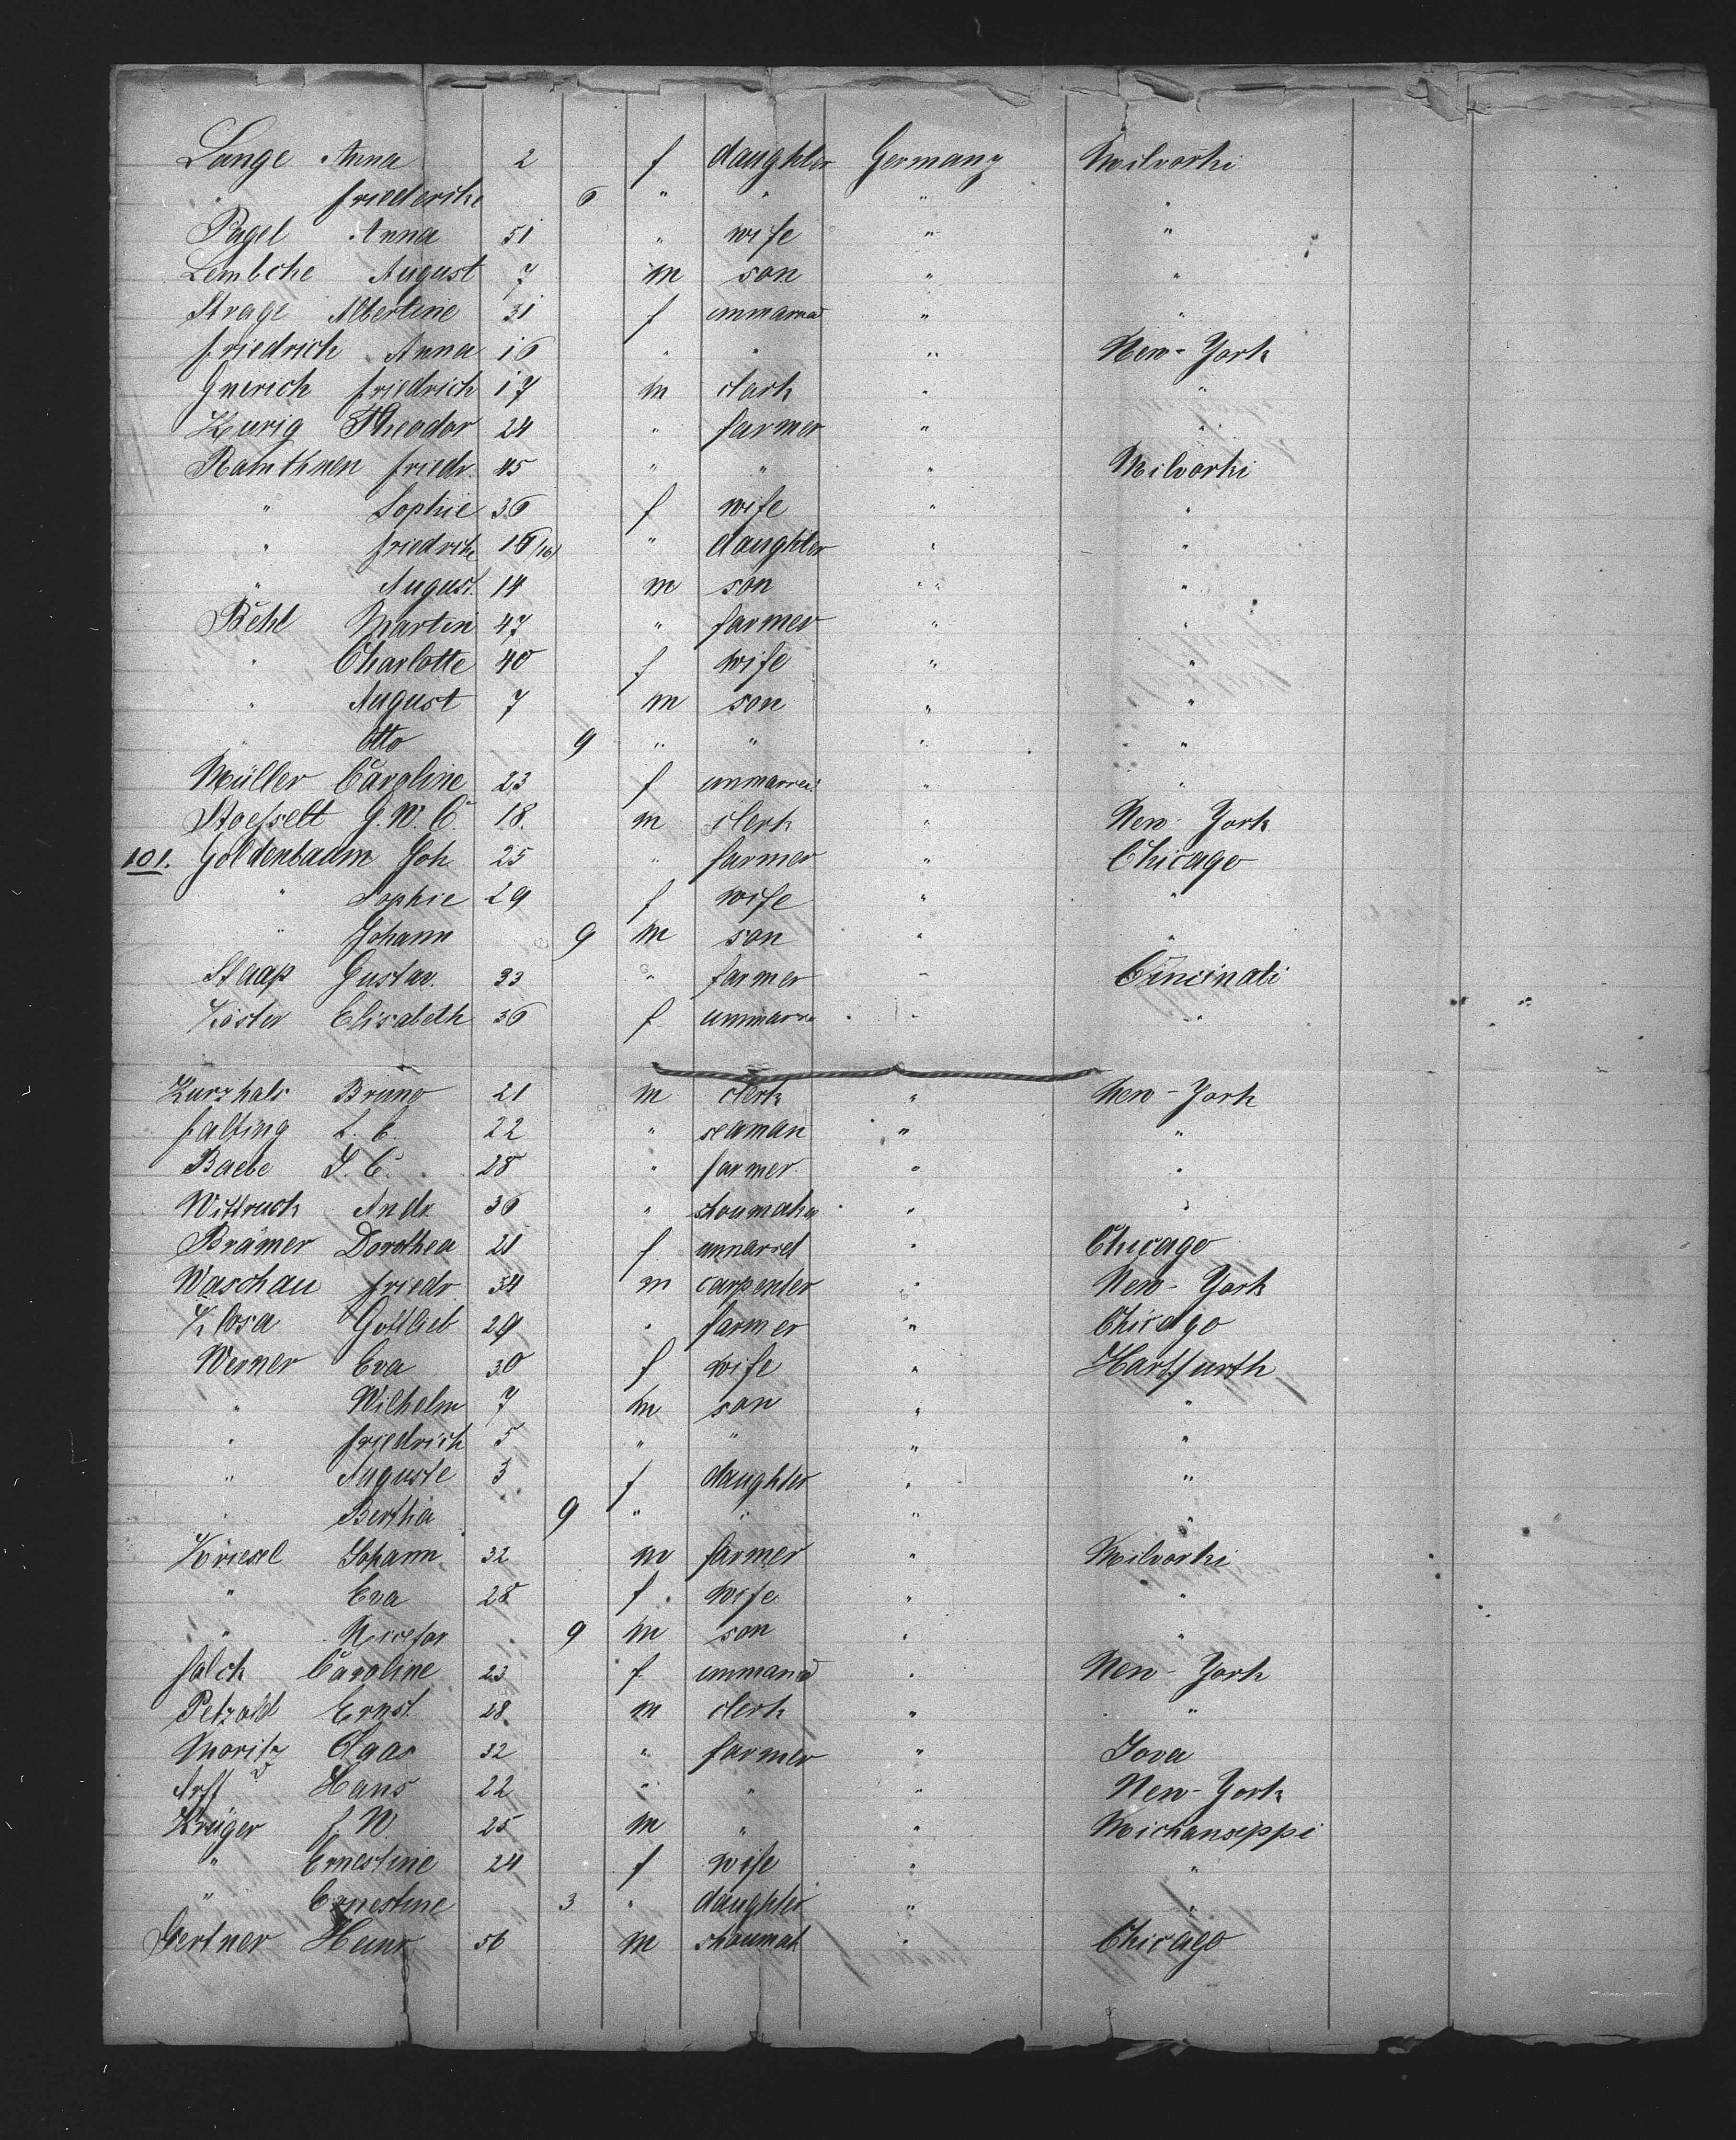 Lange Anna 2 f daughter Germany Milvorki
" Friederike 6 " " " "
Pagel Anna 51 " wife " "
Lembcke August 7 m son " "
Strage Albertine 31 f unmarrid " "
Friedrich Anna 16 " " " New-York
Gnerich Friedrich 17 m clerk " "
Kurig Theodor 24 " farmer " "
Ramthnen Friedr. 45 " " " Milvorki
" Sophie 36 f wife " "
" Friedrike 16 " daughter " "
" August. 14 m son " "
Behl Martin 47 " farmer " "
" Charlotte 40 f wife " "
" August 7 m son " "
" Otto 9 " " " "
Müller Caroline 23 f unmarried " "
Stoesselt G. W. C. 18. m clerk " New-York
101. Goldenbaum Joh. 25 " farmer " Chicago
" Sophie 29 f wife " "
" Johann 9 m son " "
Staap Gustav. 33 " farmer " Cincinati
Köster Elisabeth 36 f unmarrie " "
Kurzhals Bruno 21 m clerk " New-York
Falting L. C. 22 " seaman " "
Baebe J. C. 28 " farmer " "
Wittruck Andr. 36 " shoumaker " "
Brämer Dorothea 21 f unnaried " Chicago
Waschau Friedr. 34 m carpenter " New-York
Klosa Gottlieb 29 " farmer " Chicago
Werner Eva 30 f wife " Hartfurth
" Wilhelm 7 m son " "
" Friedrich 5 " " " "
" Auguste 3 f daughter " "
" Bertha 9 " " " "
Kriesel Johann 32 m farmer " Milvorki
" Eva 28 f wife " "
" 9 m son " "
Falck Caroline 23 f unmarrid " New-York
Petzold Ernst. 28 m clerk " "
Moritz Claas 32 " farmer " Jova
Arff Hans 22 " " " New-York
Krüger F. W. 25 m " " Michanseppi
" Ernestine 24 f wife " "
" Ernestine 3 " daughter " "
Gertner Heinr. 56 m shoumak " Chicago